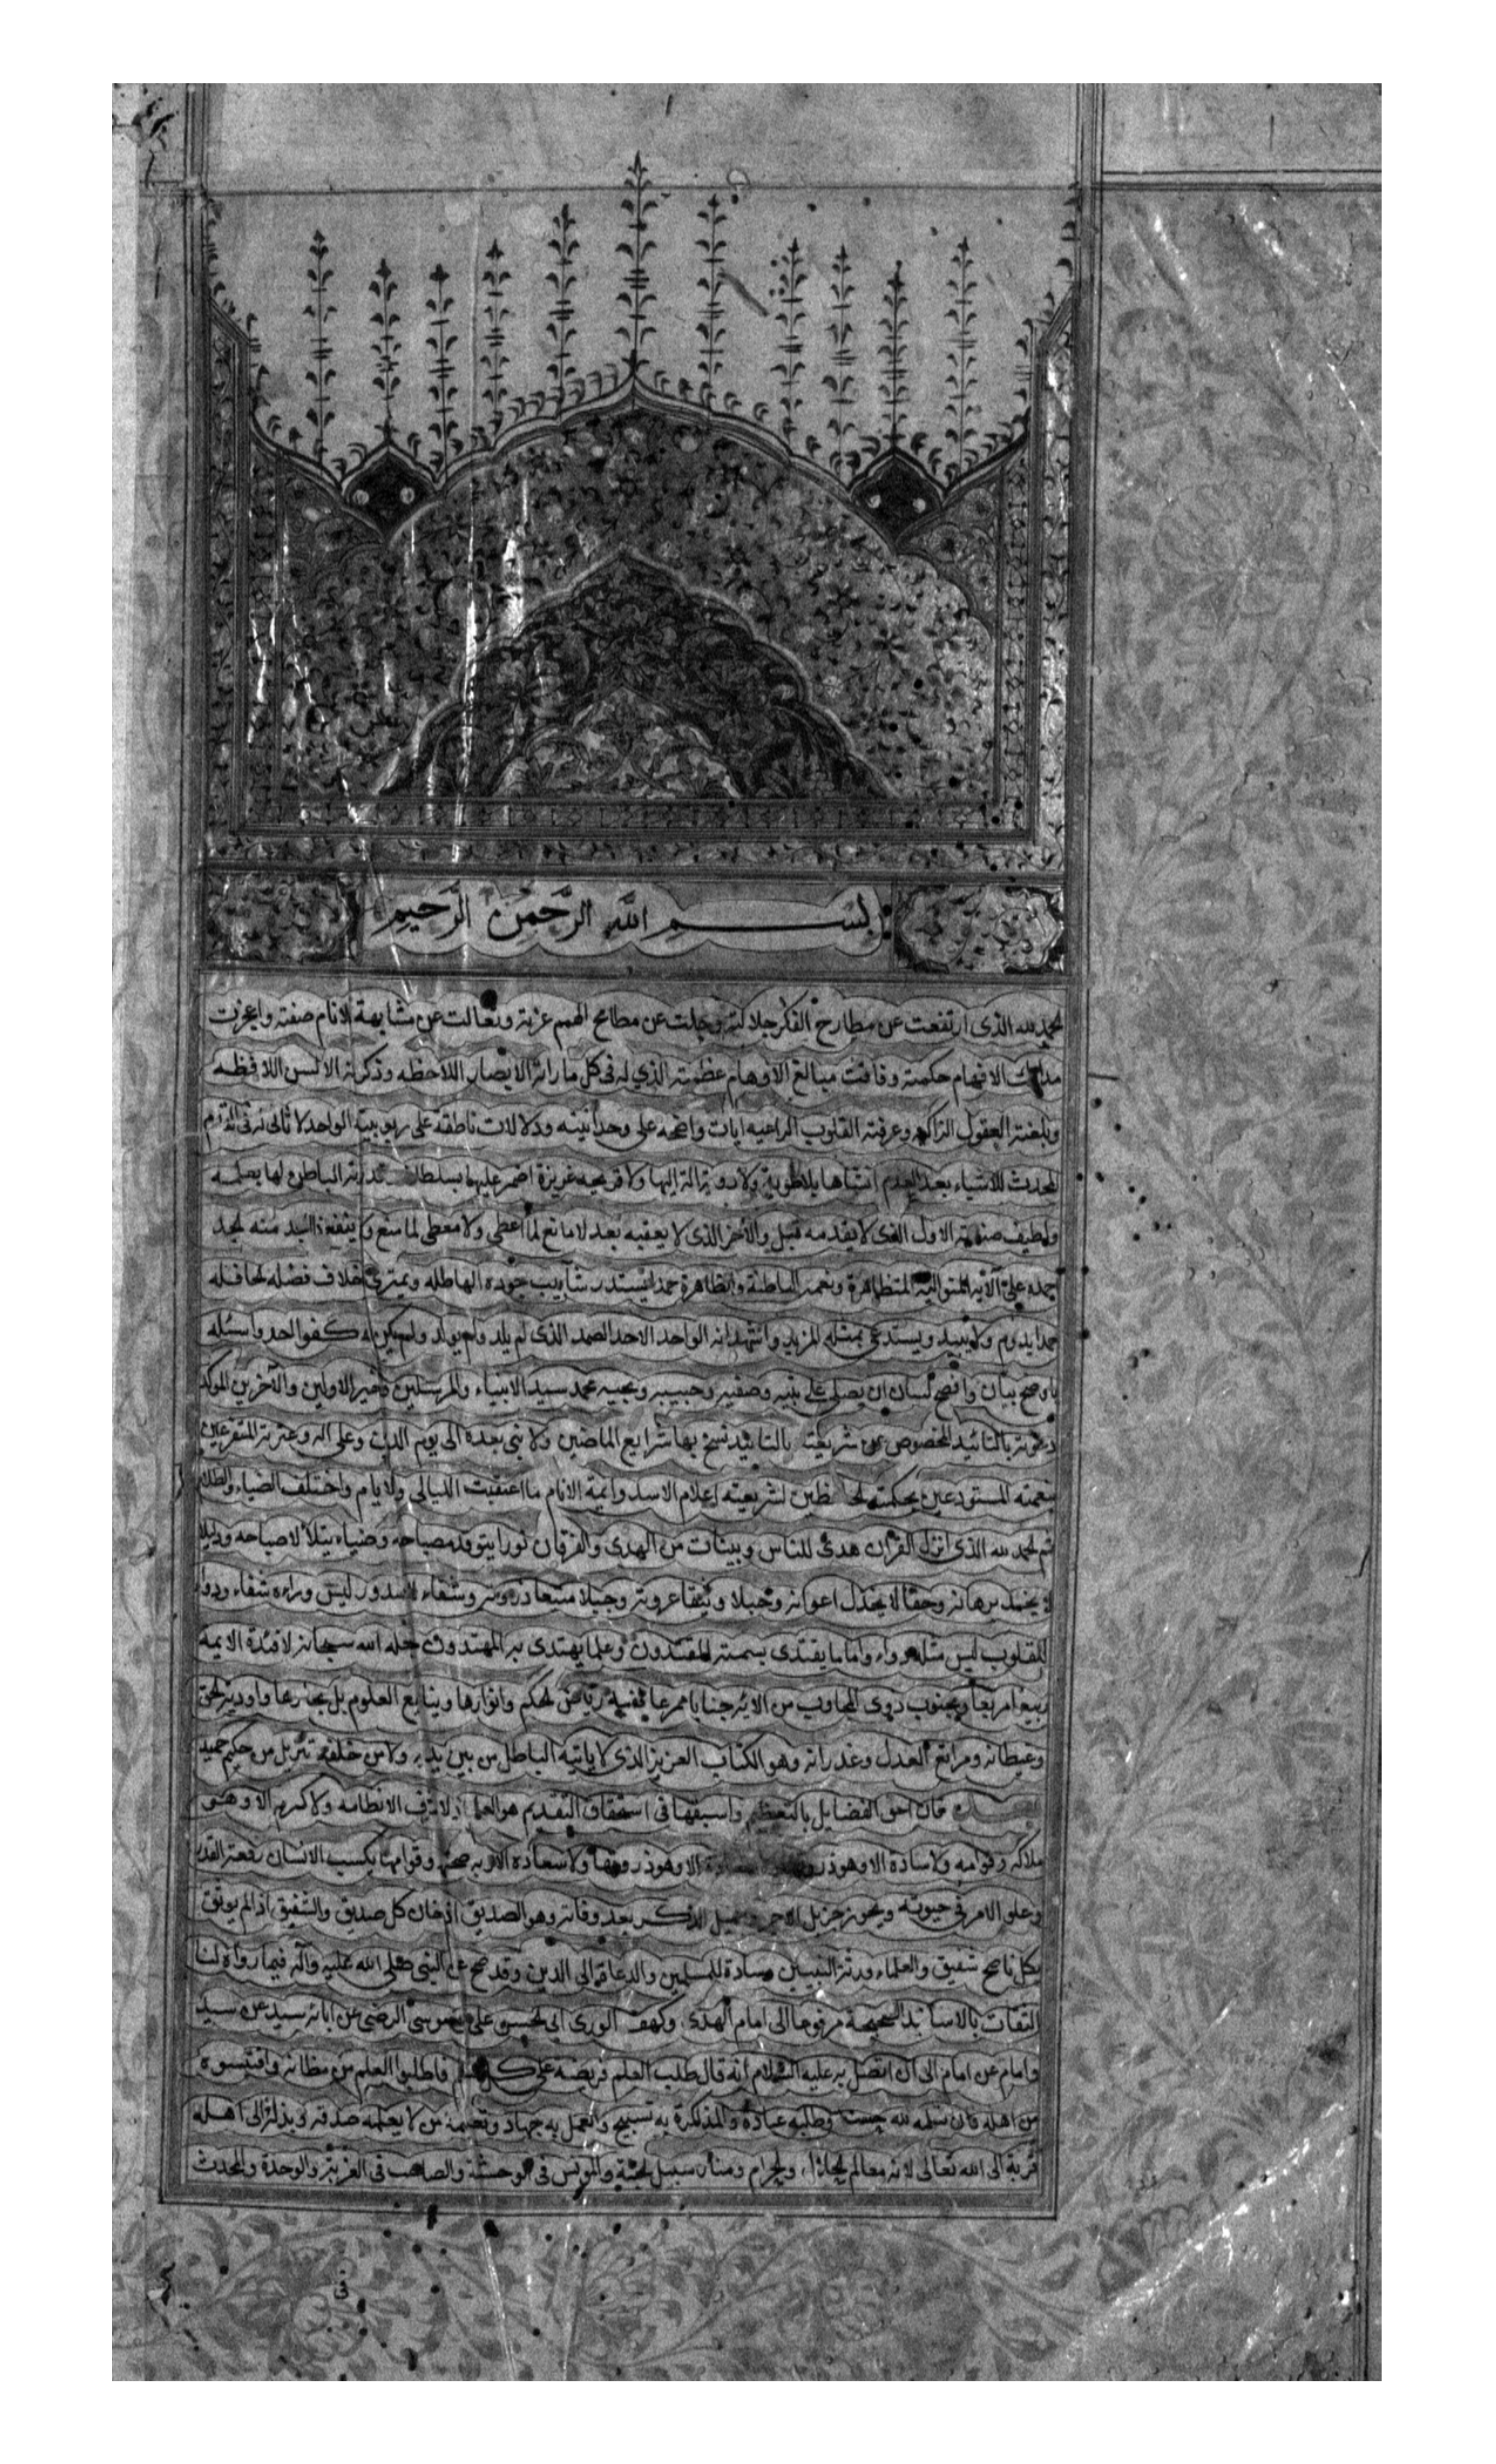 بسم الله الرَّحْمنِ الرَّحِيمِ
الحمد لله الذى ارتفعت عن مطارح الفكر جلالته وجلت عن مطامح الهمم عزته وتعالت عن مشابهة الانام صفته واعجزت
مدارك الافهام حكمته وفاتت مبالغ الاوهام عظمته الذي له فى كل ما راته الابصار اللاحظه وذكرته الالسن اللافظه
وبلغته العقول الزاكيه وعرفته القلوب الراعيه ايات واضحه على وحدانيته ودلالات ناطقه على ربوبيته الواحد لا ثانى
المحدث للاشياء بعد العدم انشاها بلا طوية ولا روية الة اليها ولا قريحه غريزة اضمر عليها بسلطان قدرته الباطن لها بعلمه
ولطيف صنعته الاول الذى لا يقدمه قبل والآخر الذى لا يعقبه بعد لا مانع لما أعطى ولا معطى لما منع ولا ينفع ذا الجد منه الجد
احمده على آلائه المتواليه المتظاهرة ونعمه الباطنة والظاهرة حمدا يستدر شآبيب جوده الهاطله ويمترى اخلاف فضله الحافله
حمدا يدوم ولا يبيد ويستدعى بمثله المزيد واشهد انه الواحد الاحد الصمد الذى لم يلد ولم يولد ولم يكن له كفوا احد واسئله
باوضح بيان وافصح لسان ان يصلى على نبيه وصفيه وحبيبه ونجيبه محمد سيد الانبياء والمرسلين وخير الاولين والآخرين الموكد
دعوته بالتائيد المخصوص من شريعته بالتابيد نسخ بها شرايع الماضين ولا نبى بعده الى يوم الدين وعلى اله وعترته المتفرعين
بنعمته المستودعين بحكمته الحافظين لشريعته اعلام الاسد وائمة الانام ما اعتقبت الليالى والايام واختلف الضياء والظلام
ثم الحمد لله الذى انزل القرآن هدى للناس وبينات من الهدى والفرقان نورا يتوقد مصباحه وضياء يتلألأ صباحه ودليلا
لا يخمد برهانه وحقا لا يخذل اعوانه وحبلا وثيقا عروته وجبلا منيعا ذروته وشفاء للصدور ليس وراءه شفاء ودواء
للقلوب ليس مثله دواء واماما يقتدى بسمته المقتدون وعلما يهتدى به المهتدون جعله الله سبحانه لافئدة الائمة
ربيعا مريعا ولجنوب ذوى المجاوب من الائه جنابا ممرعا ففيه رياض الحكم وانوارها وينابيع العلوم بل بحارها واودية الحق
وغيطانه ومراتع العدل وغدرانه وهو الكتاب العزيز الذى لا ياتيه الباطل من بين يديه ولا من خلفه تنزيل من حكيم حميد
فان احق الفضايل بالتعظيم واسبقها فى استحقاق التقديم هو العلم اذ لا شرف الا نظامه ولا كرم الا وهو
ملاكه وقوامه ولا سيادة الا وهو ذروتها الا وهو ذروتها ولا سعادة الا وبه صحتها وقوامها بكسب الانسان رفعة القدر
وعلو الامر فى حيوته ويحوز جزيل الاجر وجميل الذكر بعد وفاته وهو الصديق اذ خان كل صديق والشفيق اذ لم يوثق
بكل ناصح شفيق والعلماء ورثة النبيين وسادة المسلمين والدعاة الى الدين وقد صح عن النبى صلى الله عليه وآله فيما رواه لنا
الثقات بالاسانيد الصحيحة مرفوعا الى امام الهدى وكهف الورى ابى الحسن على بن موسى الرضى عن ابائه سيد عن سيد
وامام عن امام الى ان اتصل به عليه السلام انه قال طلب العلم فريضه على كل مسلم فاطلبوا العلم من مظانه واقتبسوه
من اهله فان تعلمه لله حسنة وطلبه عبادة والمذاكرة به تسبيح والعمل به جهاد وتعليمه من لا يعلمه صدقه وبذله الى اهله
قربة الى الله تعالى لانه معالم الحلال والحرام ومنار سبيل الجنة والمونس فى الوحشة والصاحب فى الغربة والوحدة والمحدث
فى